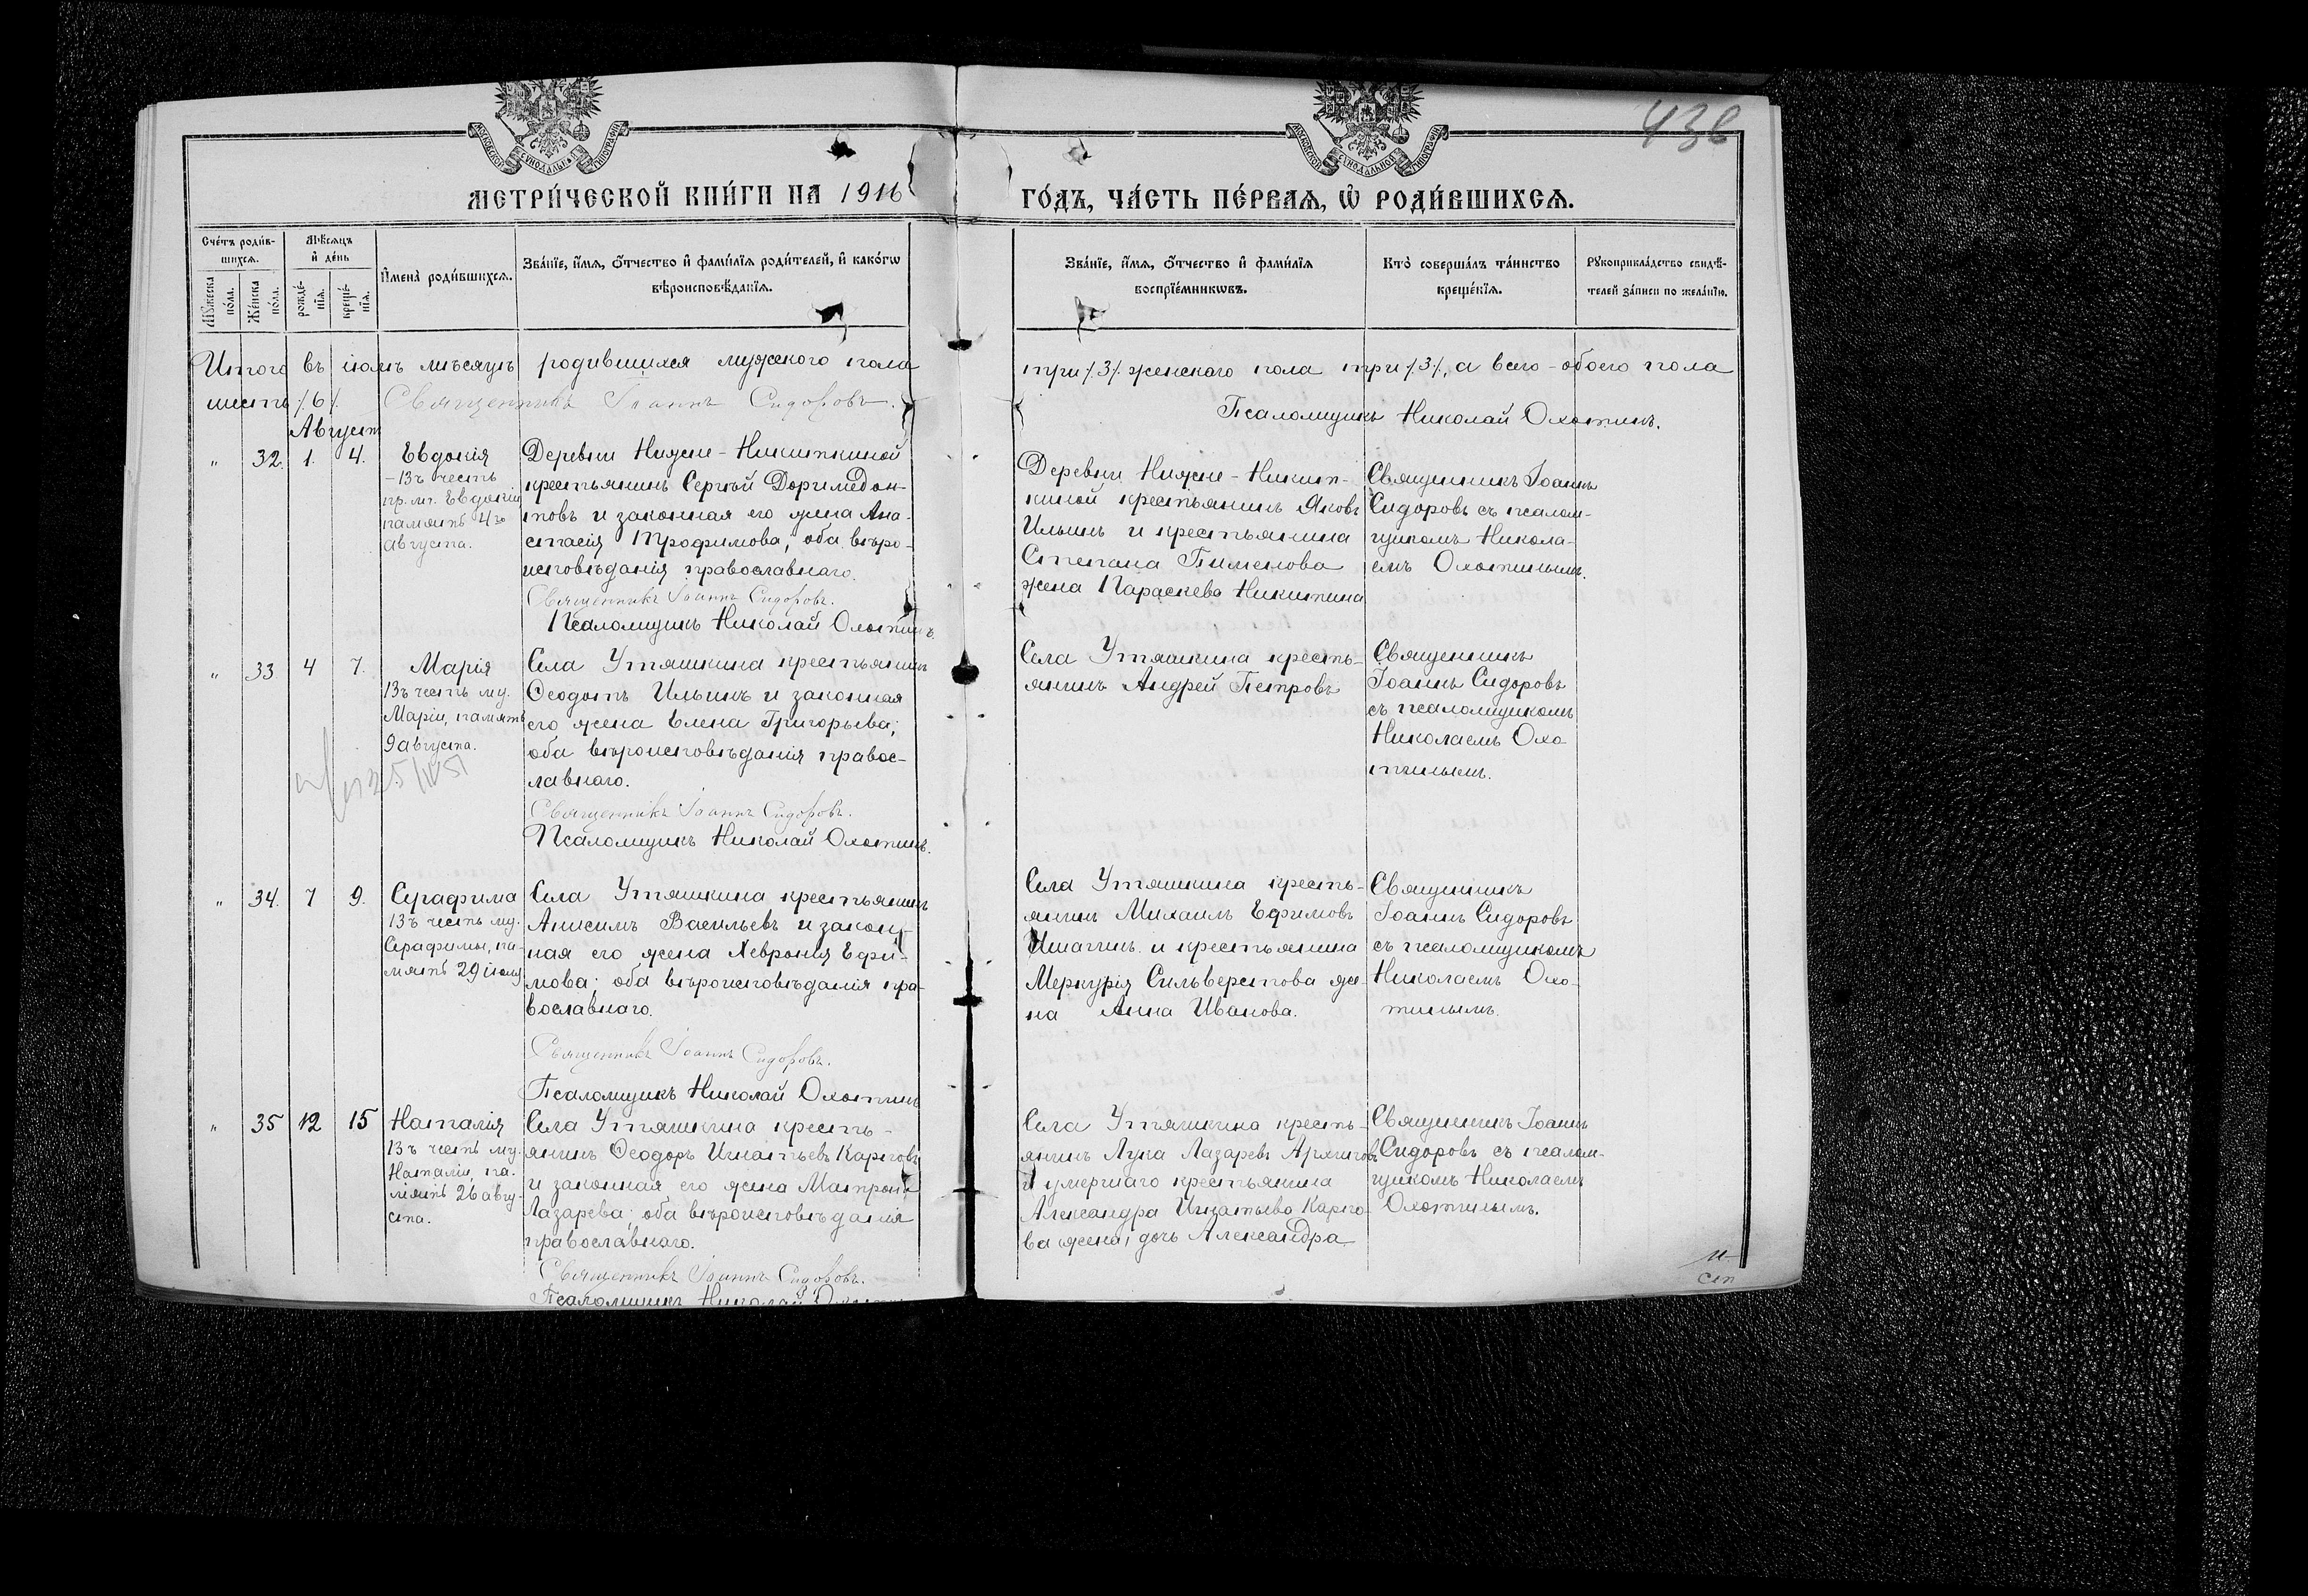 436
МОСКОВСКОЙ СѴНОДАЛЬНОЙ ТИПОГРАФІИ
МОСКОВСКОЙ СѴНОДАЛЬНОЙ ТИПОГРАФІИ
МЕТРИ́ЧЕСКОЙ КНИ́ГИ НА 1916
ГО́ДЪ, ЧА́СТЬ ПЕ́РВАЯ, Ѡ҆ РОДИ́ВШИХСЯ.
Сче́тъ роди́в-
шихся.
Мѣ́сяцъ
и҆ де́нь
Мꙋ́жеска
по́ла.
Же́нска
по́ла.
рожде́-
нїя.
креще́-
нїя.
И҆мена̀ роди́вшихся.
Зва́нїе, и҆́мя, ѻ҆́тчество и҆ фами́лїя роди́телей, и҆ како́гѡ
вѣроисповѣ́данїя.
Зва́нїе, и҆́мя, ѻ҆́тчество и҆ фами́лїя
воспрїе́мникѡвъ.
Кто̀ соверша́лъ та́инство
креще́нїя.
Рꙋкоприкла́дство свидѣ́-
телей за́писи по жела́нїю.
Итого въ іюлѣ мѣсяцѣ родившихся мужского пола
три /.3/. женскаго пола три /.3/., а всего - обоего пола
шесть /.6/. Священникъ Іоаннъ Сидоровъ.
Псаломщикъ Николай Охотинъ.
Август
" 32. 1. 4. Евдокія
Въ честь
пр. м. Евдокіи
память 4го
августа.
Деревни Нижне-Никиткиной
крестьянинъ Сергѣй Доримедон-
товъ и законная его жена Ана-
стасія Трофимова, оба вѣро-
исповѣданія православнаго.
Священникъ Іоаннъ Сидоровъ.
Псаломщикъ Николай Охотинъ.
Деревни Нижне-Никит-
киной крестьянинъ Яковъ
Ильинъ и крестьянина
Степана Пименова
жена Параскева Никитина
Священникъ Іоаннъ
Сидоровъ съ псалом-
щикомъ Никола-
емъ Охотинымъ.
" 33 4 7. Марія
Въ честь му.
Маріи, память
9 августа.
Села Утяшкина крестьянинъ
Ѳеодотъ Ильинъ и законная
его жена Елена Григорьева;
оба вѣроисповѣданія правос-
лавнаго.
Священникъ Іоаннъ Сидоровъ.
Псаломщикъ Николай Охотинъ.
Села Утяшкина кресть-
янинъ Андрей Петровъ
Священникъ
Іоаннъ Сидоровъ
съ псаломщикомъ
Николаемъ Охо-
тинымъ.
" 34. 7 9. Серафима
Въ честь му.
Серафимы, па-
мять 29 іюля
Села Утяшкина крестьянинъ
Анисимъ Васильевъ и закон-
ная его жена Хевронія Ефи-
мова; оба вѣроисповѣданія пра-
вославнаго.
Священникъ Іоаннъ Сидоровъ.
Псаломщикъ Николай Охотинъ
Села Утяшкина кресть-
янин Михаилъ Ефимовъ
и крестьянина
Меркурія Сильверстова же-
на Анна Иванова.
Священникъ
Іоаннъ Сидоровъ
съ псаломщикомъ
Николаемъ Охо-
тинымъ.
" 35 12 15 Наталія
Въ честь му.
Наталіи, па-
мять 26 авгу-
ста.
Села Утяшкина кресть-
янинъ Ѳеодоръ Игнатьевъ Карповъ
и законная его жена Матрона
Лазарева; оба вѣроисповѣданія
православнаго.
Священникъ Іоаннъ Сидоровъ.
Псаломщикъ Николай Охотинъ
Села Утяшкина кресть-
янинъ Лука Лазаревъ Архиповъ
и умершаго крестьянина
Александра Игнатьева Карпо-
ва жена, дочь Александра
Священникъ Іоаннъ
Сидоровъ съ псалом-
щикомъ Николаемъ
Охотинымъ.